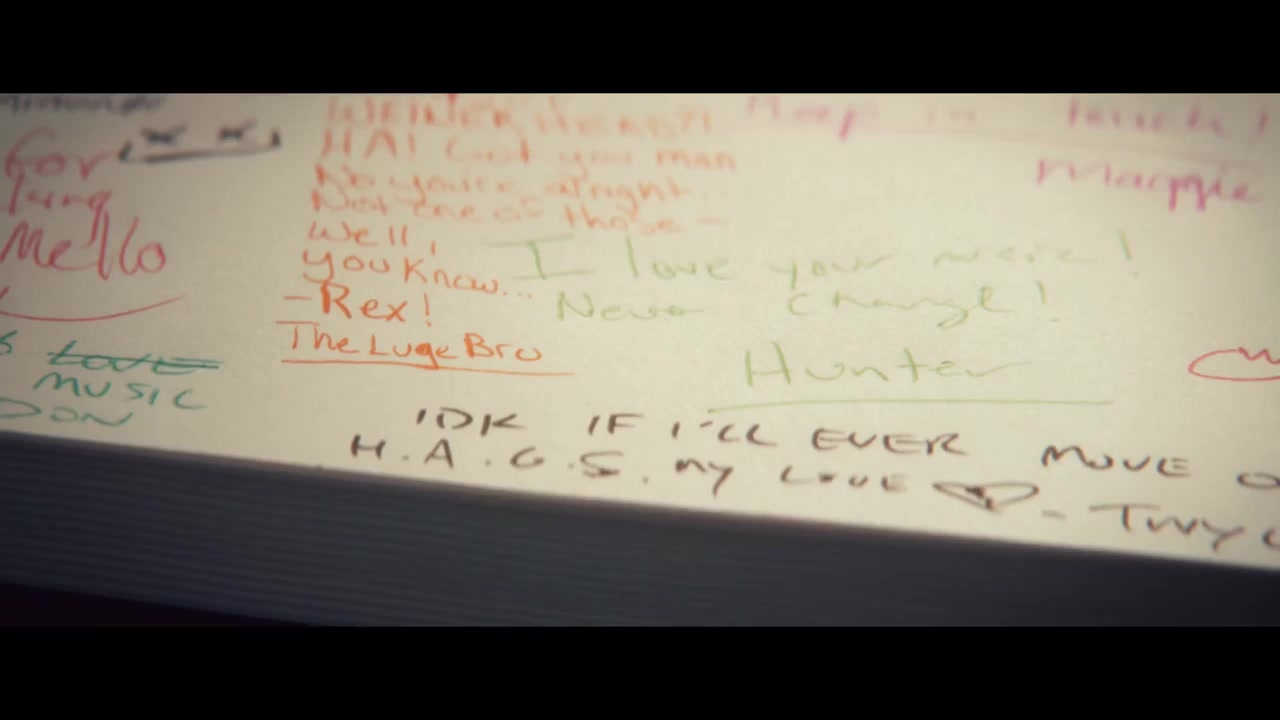 for
Mello
MUSIC
WEINER HEAD?!
HA! Got you man
No you're alright..
Not one of those -
Well,
you know...
- Rex!
The Luge Bro
Keep in touch!
Maggie
I love your music!
Never change!
Hunter
IDK IF I'LL EVER MOVE
H.A.G.S. my LOVE - TWY